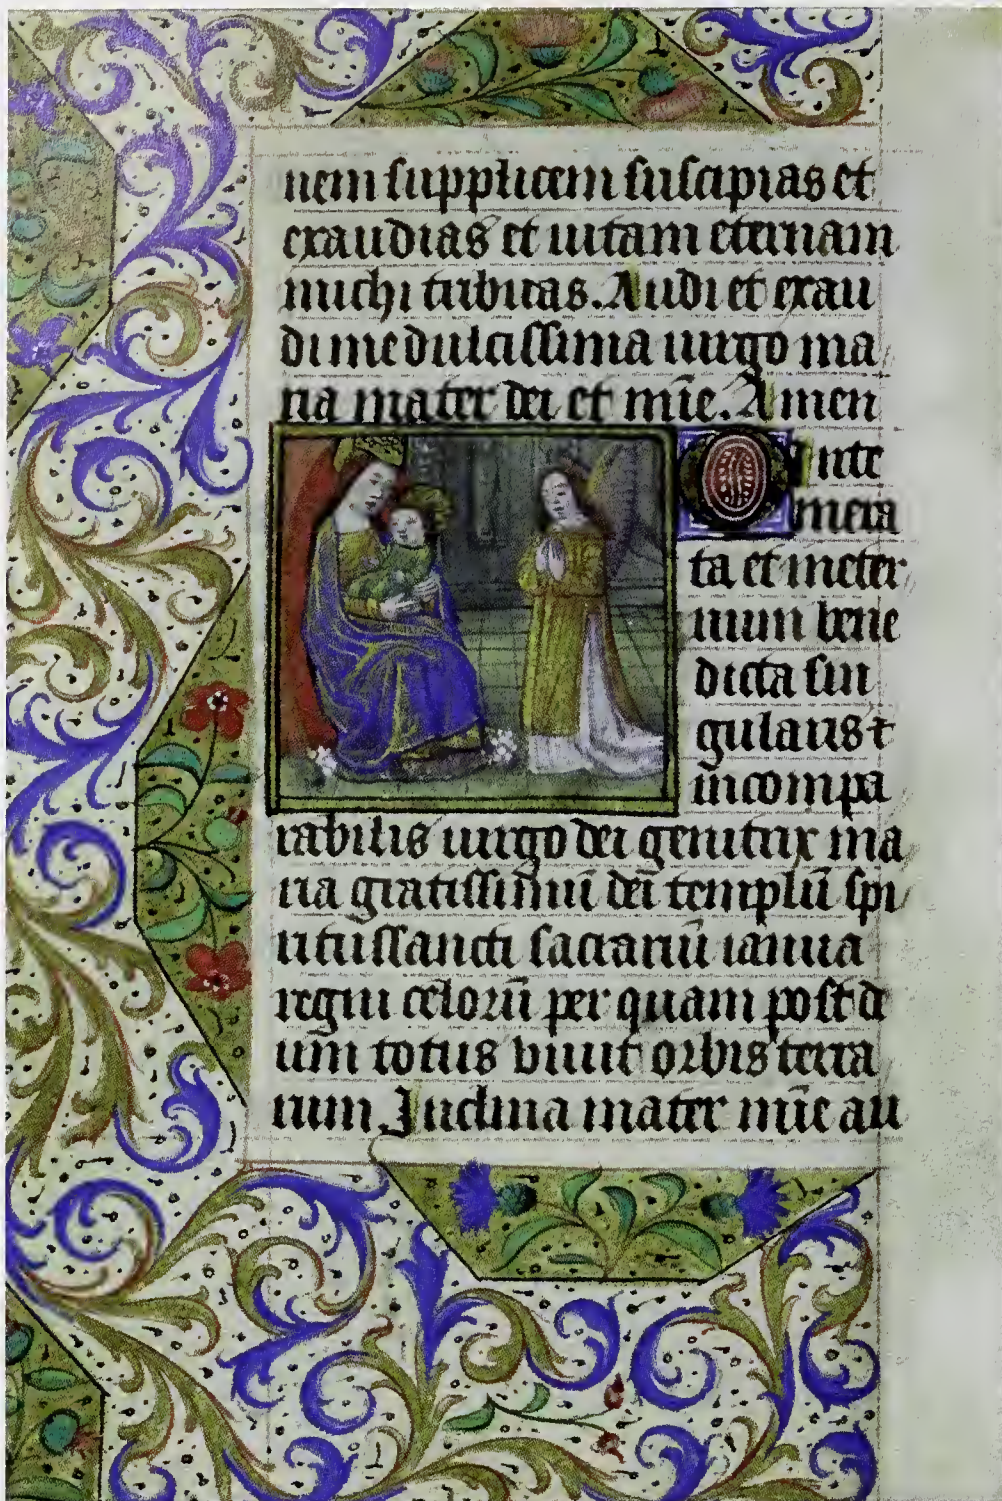 nem supplicem suscipias et
exaudias et uitam eternam
michi tribuas. Audi et exau
di me dulcissima uirgo ma
ria mater dei et mīe. Amen
O inte
mera
ta et in eter
num bene
dicta sin
gularis ⁊
incompa
rabilis uirgo dei genitrix ma
ria gratissimū dei templū spi
ritussancti sacrariū ianua
regni celorū per quam post de
um totus viuit orbis terra
rum. Inclina mater mīe au